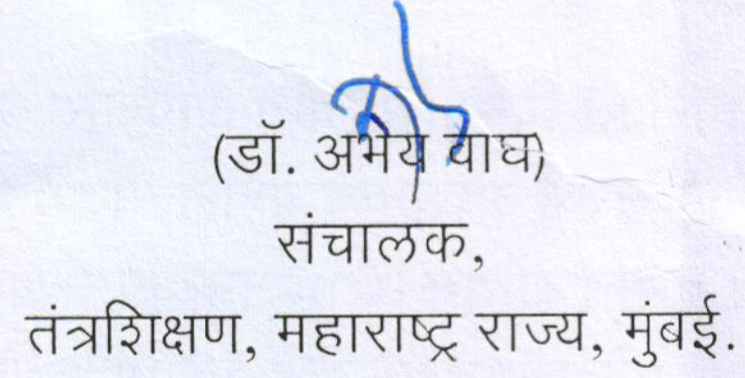 (डॉ. अभय वाघ)
संचालक,
तंत्रशिक्षण, महाराष्ट्र राज्य, मुंबई.